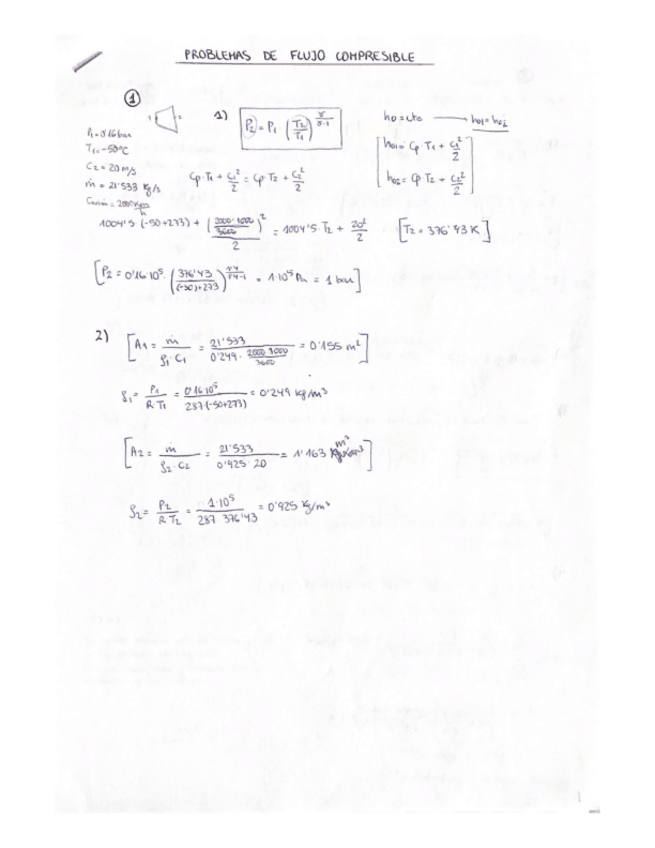 PROBLEMAS DE FLUJO COMPRESIBLE
①
1 2
P1 = 0'16 bar
T1 = -50°C
C2 = 20 m/s
ṁ = 21'533 kg/s
1) P2 = P1 (T2/T1)^(γ/(γ-1))
h0 = cte → h01 = h02
h01 = Cp T1 + C1²/2
h02 = Cp T2 + C2²/2
Cp·T1 + C1²/2 = Cp T2 + C2²/2
1004'5·(-50+273) + (2000·1000/3600)²/2 = 1004'5·T2 + 20²/2 [T2 = 376'43 K]
[P2 = 0'16·10⁵·(376'43/((-50)+273))^(1'4/(1'4-1)) = 1·10⁵ Pa = 1 bar]
2) [A1 = ṁ/(ρ1·C1) = 21'533/(0'249·2000·1000/3600) = 0'155 m²]
ρ1 = P1/(R T1) = 0'16·10⁵/(287·(-50+273)) = 0'249 kg/m³
[A2 = ṁ/(ρ2·C2) = 21'533/(0'925·20) = 1'163 m²]
ρ2 = P2/(R T2) = 1·10⁵/(287·376'43) = 0'925 kg/m³
1